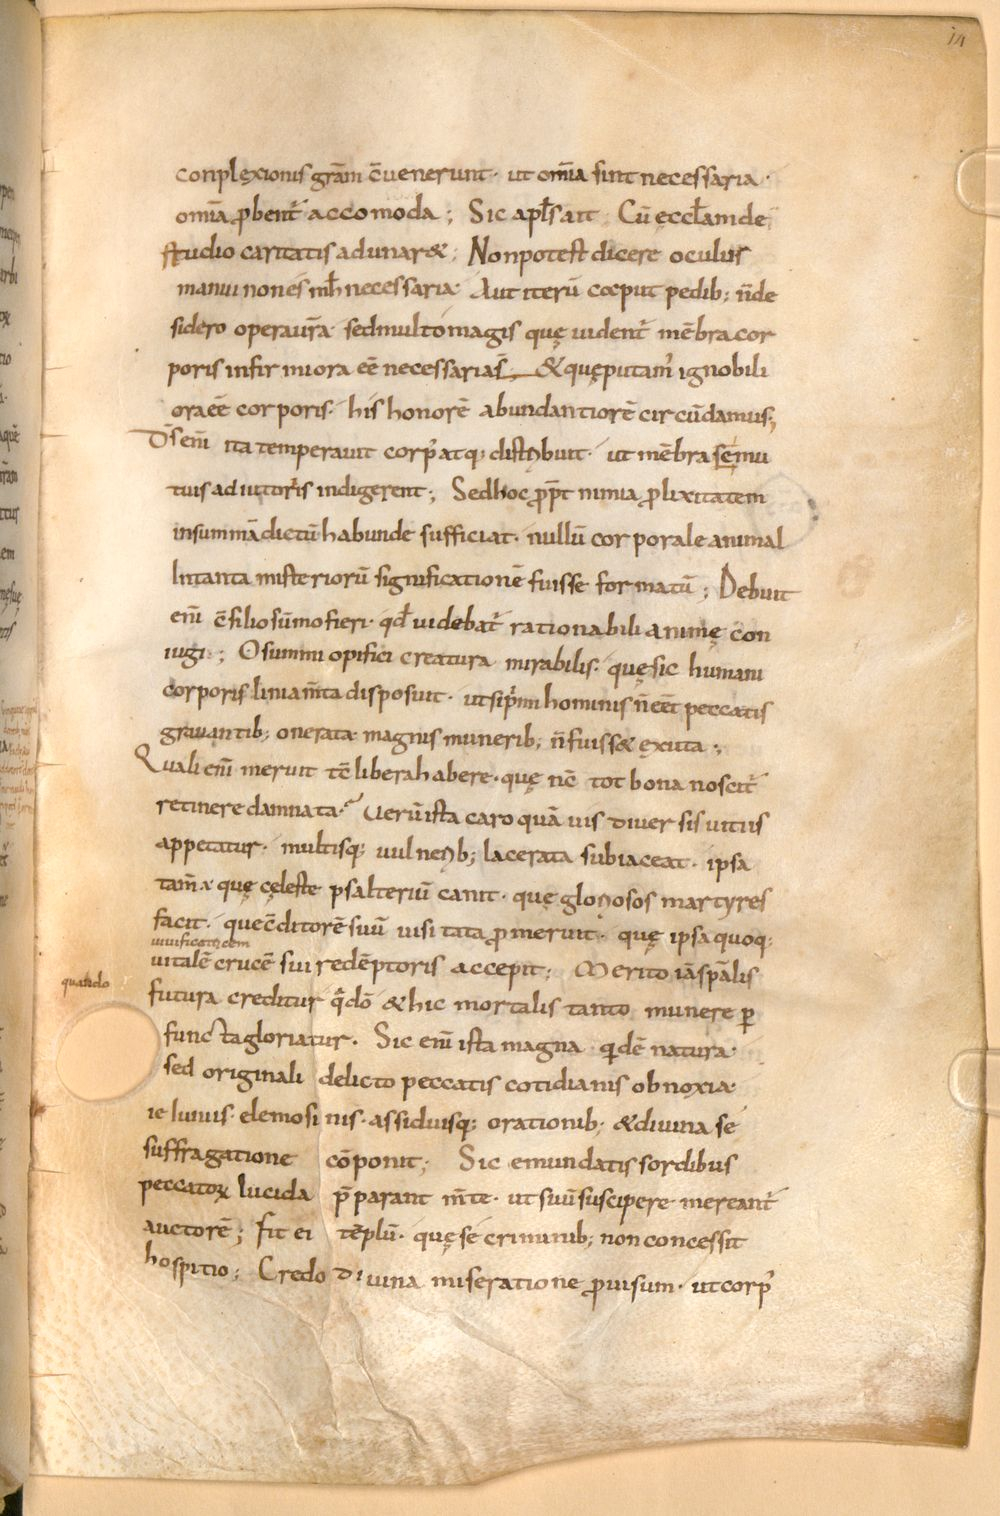 14
conplęxionis grām c̄uenerunt· ut om̄ia sint necessaria·
om̄ia p̱benť accomoda; Sic apłs ait; Cū ęccłam de
studio caritatis adunar&; Non potest dicere oculus
manui non es m̄h necessaria· Aut iterū capút pedib; n̄ de
sidero operā ur̄a· sed multo magis quę uidenť mēbra cor
poris infirmiora eē necessaria s̄; & quę putam̓ ignobili
ora eē corporis· his honorē abundantiorē circūdamus;
D̄s eni̅ ita temperauit corp̓ atq; distribuit· ut mēbra se mu
tuis adiutoriis indigerent; Sed hoc p̱p̄t nimia p̱lixitatem
in summā dictū habunde sufficiat· nullū corporale animal
In tanta misteriorū significationē fuisse formatū; Debuit
eni̅ c̄filio sūmo fieri· qđ uidebať rationabili animę con
iugi; O summi opifici creatura mirabilis· quę sic humani
corporis liniam̄ta disposuit· ut si p̓mi hominis n̄ eēt peccatis
grauantib; onerata magnis munerib; n̄ fuiss& ęxuta;
Quali eni̅ meruit tc̄ libera habere· quę nc̄ tot bona nosciť
retinere damnata? Uerū ista caro quāuis diuersis uitiis
appetatur· multisq; uulnerib; lacerata subiaceat· ipsa
tam̄ ÷ quę cęleste psalteriū canit· quę gloriosos martyres
facit· que c̄ditorē suū uisitata p̱meruit· quę ipsa quoq;
uiuificatricem
uitalē crucē sui redēptoris accepit; Merito iā sp̄alis
quando
futura creditur q̄dō & hic mortalis tanto munere ꝑ
functa gloriatur. Sic eni̅ ista magna qdē natura·
sed originali delicto peccatis cotidianis obnoxia·
ieiuniis· elemosinis· assiduisq; orationib; & diuina se
suffragatione cōponit; Sic emundatis sordibus
peccatoꝝ lucida p̄parant m̄te· ut suū suscipere mereanť
auctorē; fit ei tēplū· quę se criminib; non concessit
hospitio; Credo diuina miseratione p̱uisum· ut corp̓